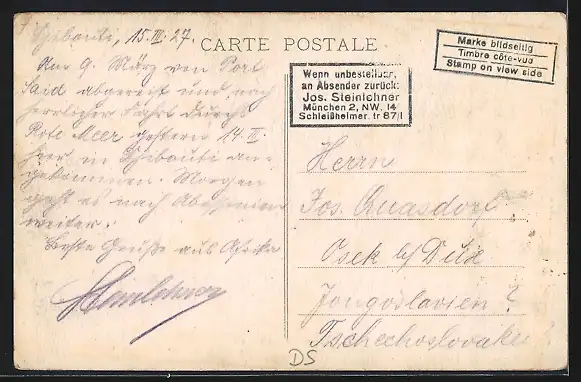 Djibouti, 15.III.27.
CARTE POSTALE
Am 9. März von Port
Said abgereist und nach
herrlicher Fahrt durchs
Rote Meer gestern 14.III
hier in Djibouti an-
gekommen. Morgen
geht es nach Abessinien
weiter.
Beste Grüße aus Afrika
Wenn unbestellbar,
an Absender zurück:
Jos. Steinlehner
München 2, NW. 14
Schleißheimer tr 87/I
Marke bildseitig
Timbre côte-vue
Stamp on view side
Herrn
Jos. Quasdorf
Osek b/ Dux
Jongoslavien?
Tschechoslovakei
DS